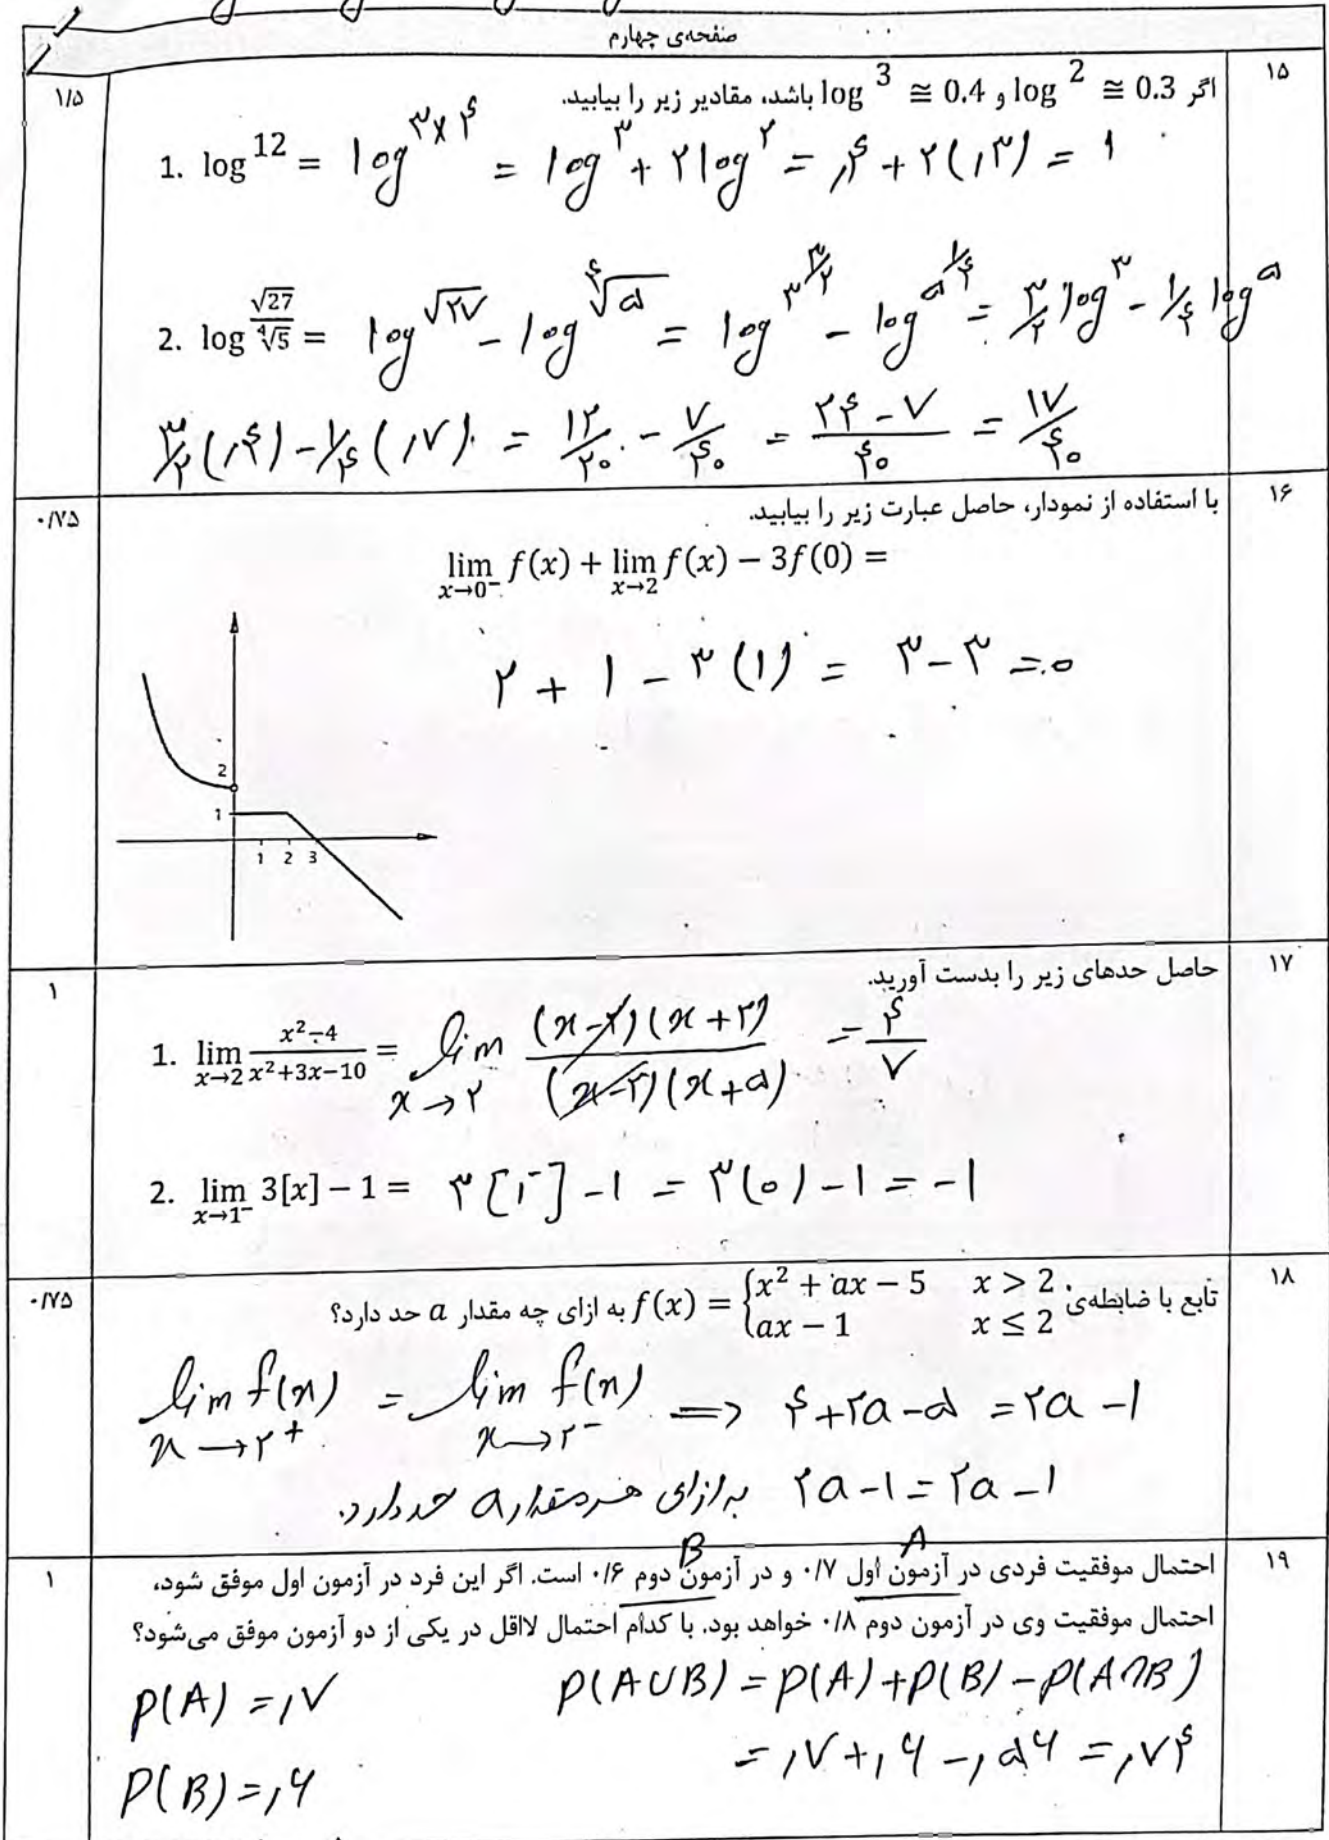 صفحه‌ی چهارم
۱۵
اگر log 2 ≅ 0.3 و log 3 ≅ 0.4 باشد، مقادیر زیر را بیابید.
۱/۵
1. log 12 = log ۳×۴ = log ۳ + ۲ log ۲ = ,۴ + ۲(,۳) = ۱
2. log √27/∜5 = log √۲۷ - log ∜۵ = log ۳^۳/۲ - log ۵^۱/۴ = ۳/۲ log ۳ - ۱/۴ log ۵
۳/۲ (,۴) - ۱/۴ (,۷) = ۱۲/۲۰ - ۷/۴۰ = ۲۴ - ۷/۴۰ = ۱۷/۴۰
۱۶
با استفاده از نمودار، حاصل عبارت زیر را بیابید.
۰/۷۵
lim x→0⁻ f(x) + lim x→2 f(x) − 3f(0) =
۲ + ۱ - ۳(۱) = ۳ - ۳ = ۰
2
1
1 2 3
۱۷
حاصل حدهای زیر را بدست آورید.
۱
1. lim x→2 x²−4/x²+3x−10 = lim x→۲ (x-۲)(x+۲)/(x-۲)(x+۵) = ۴/۷
2. lim x→1⁻ 3[x] − 1 = ۳[۱⁻] - ۱ = ۳(۰) - ۱ = -۱
۱۸
تابع با ضابطه‌ی f(x) = {x² + ax − 5 x > 2 به ازای چه مقدار a حد دارد؟
ax − 1 x ≤ 2
۰/۷۵
lim x→۲⁺ f(x) = lim x→۲⁻ f(x) => ۴+۲a-۵ = ۲a-۱
۲a-۱ = ۲a-۱ به ازای هر مقدار a حد دارد.
A
B
۱۹
احتمال موفقیت فردی در آزمون اول ۰/۷ و در آزمون دوم ۰/۶ است. اگر این فرد در آزمون اول موفق شود،
۱
احتمال موفقیت وی در آزمون دوم ۰/۸ خواهد بود. با کدام احتمال لااقل در یکی از دو آزمون موفق می‌شود؟
P(A) = ,۷
P(A∪B) = P(A) + P(B) - P(A∩B)
= ,۷ + ,۶ - ,۵۶ = ,۷۴
P(B) = ,۶